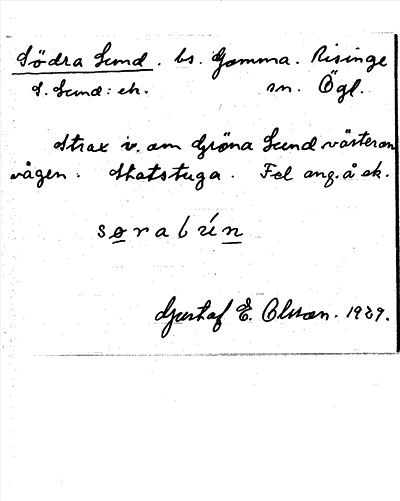 Södra Sund. bs. Gamma. Risinge
S. Sund: ek. sn. Ögl.
Strax v. om Gröna Sund västerom
vägen. Statstuga. Fel ang. å ek.
Gustaf E. Olsson. 1929.